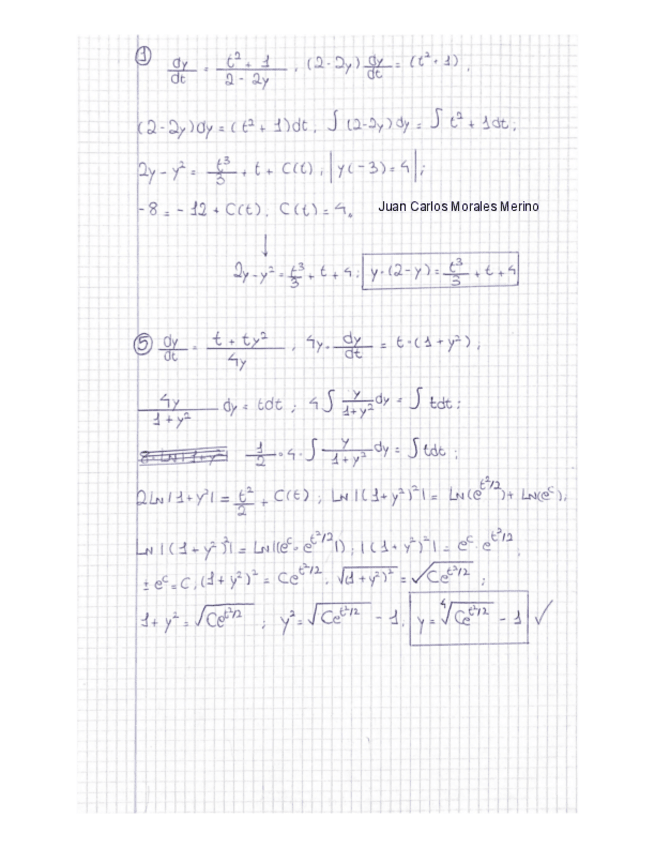 ① dy/dt = (t² + 1)/(2 - 2y) , (2 - 2y) dy/dt = (t² + 1).
(2 - 2y)dy = (t² + 1)dt, ∫ (2-2y)dy = ∫ t² + 1dt;
2y - y² = t³/3 + t + C(t), |y(-3) = 4|;
-8 = -12 + C(t), C(t) = 4. Juan Carlos Morales Merino
↓
2y - y² = t³/3 + t + 4; y·(2-y) = t³/3 + t + 4
⑤ dy/dt = (t + ty²)/4y , 4y · dy/dt = t·(1+y²),
4y/(1+y²) dy = tdt ; 4∫ y/(1+y²) dy = ∫ tdt ;
1/2 · 4 · ∫ y/(1+y²) dy = ∫ tdt ;
2Ln|1+y²| = t²/2 + C(t) ; Ln|(1+y²)²| = Ln(e^(t²/2)) + Ln(e^c);
Ln|(1+y²)²| = Ln|(e^c · e^(t²/2)|) ; |(1+y²)²| = e^c · e^(t²/2),
± e^c = C, (1+y²)² = Ce^(t²/2), √(1+y²)² = √Ce^(t²/2) ;
1+y² = √Ce^(t²/2) ; y² = √Ce^(t²/2) - 1, y = ⁴√Ce^(t²/2) - 1 ✓